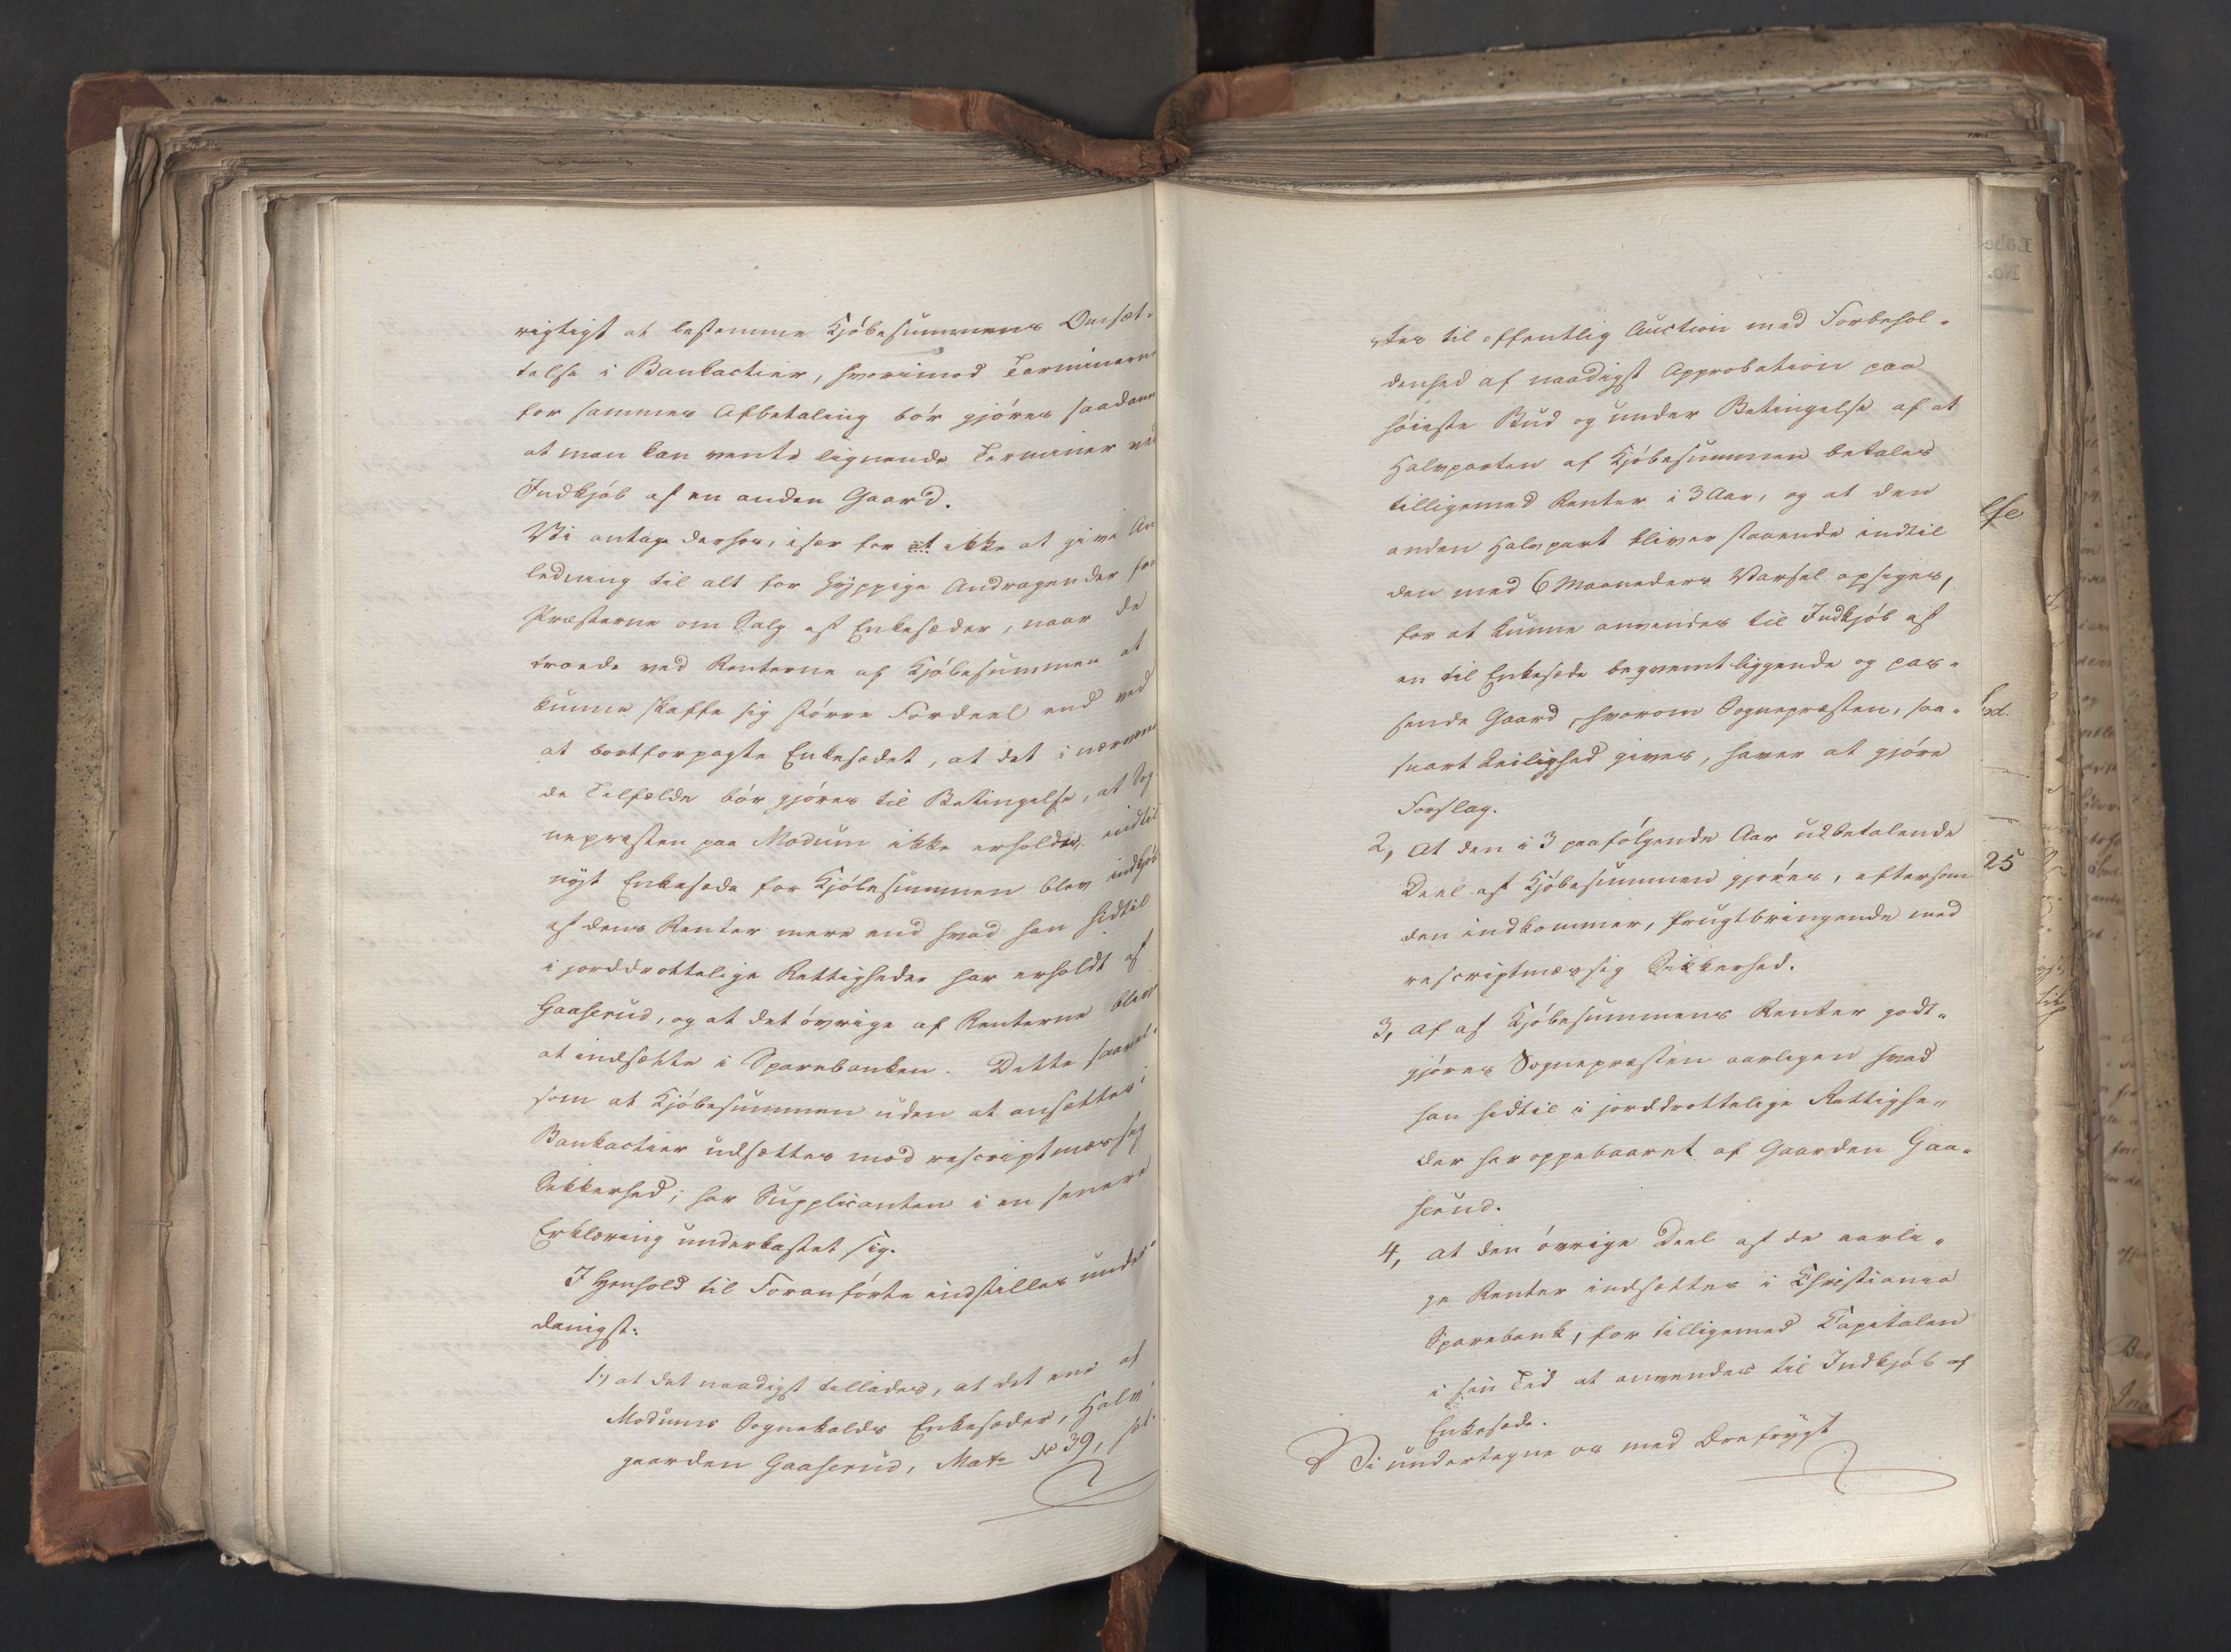 rigtigst at bestemme Kjøbesummens Omsæt-
telse i Bankactier, hvorimod Terminerne
for sammes Afbetaling bør gjøres saadanne
at man kan vente lignende Terminer ved
Indkjøb af en anden Gaard.
Vi antage derhos, især for ei ikke at give An
ledning til alt for hyppige Andragender fra
Præsterne om Salg af Enkesæder, naar de
troede ved Renterne af Kjøbesummen at
kunne skaffe sig större Fordeel end ved
at bortforpagte Enkesædet, at det i nærværen
de Tilfælde bör gjöres til Betingelse, at Sog
nepræsten paa Modum ikke erholder, indtil
nyt Enkesæde for Kjöbesummen blev indkjöbt
af dens Renter mere end hvad han hidtil
i jorddrottelige Rettigheder har erholdt af
Gaaserud, og at det övrige af Renterne blev
at indsætte i Sparebanken. Dette saavel
som at Kjöbesummen uden at ansættes i
Bankactier udsættes mod rescriptmæssig
Sikkerhed, har Supplicanten i en senere
Erklæring underkastet sig.
I Henhold til Foranförte indstilles under
danigst:
1., at det naadigst tillades, at det ene af
Modums Sognekalds Enkesæder, Halv
gaarden Gaaserud, Matr No 39, sæt
-tes til offentlig Auction med Forbehol-
denhed af naadigst Approbation paa
höieste Bud og under Betingelse af at
Halvparten af Kjöbesummen betales
tilligemed Renter i 3 Aar, og at den
anden Halvpart bliver staaende indtil
den med 6 Maaneders Varsel opsiges,
for at kunne anvendes til Indkjöb af
en til Enkesæde beqvemt liggende og pas-
sende Gaard, hvorom Sognepræsten, saa-
snart Leilighed gives, haver at gjöre
Forslag.
2, At den i 3 paafölgende Aar udbetalende
Deel af Kjöbesummen gjöres, eftersom
den indkommer, frugtbringende mod
rescriptmæssig Sikkerhed.
3, At af Kjöbesummens Renter godt-
gjöres Sognepræsten aarligen hvad
han hidtil i jorddrottelige Rettighe-
der har oppebaaret af Gaarden Gaa-
serud.
4, At den övrige Deel af de aarli-
ge Renter indsættes i Christiania
Sparebank, for tilligemed Capitalen
i sin Tid at anvendes til Indkjöb af
Enkesæde.
Vi undertegne os med Ærefrygt
25